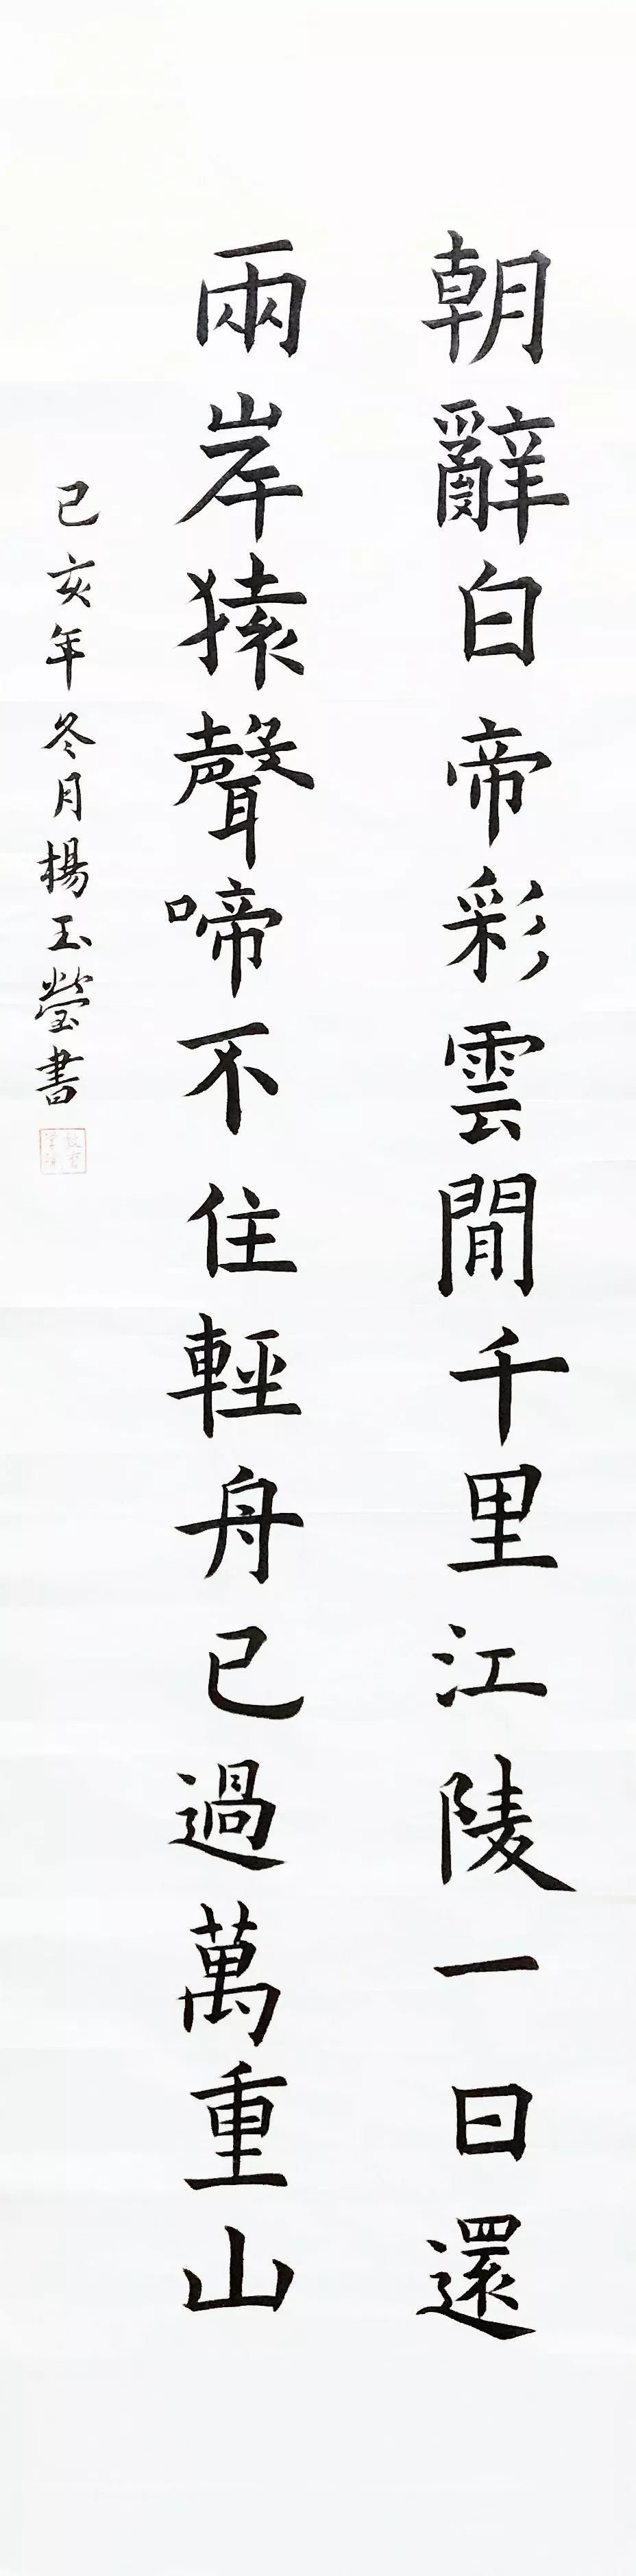 朝辭白帝彩雲閒千里江陵一日還
兩岸猿聲啼不住輕舟已過萬重山
己亥年冬月楊玉瑩書